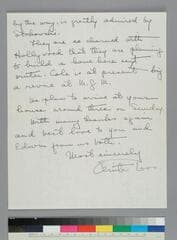 by the way, is greatly admired by
Stokowski.
They are so charmed with
Hollywood that they are planning
to build a home here very
Cole is at present
a at M. G. M.
We plan to arrive at your
house around three on Sunday.
With many thanks again
and best love to you and
Edwin from us both.
Most sincerely